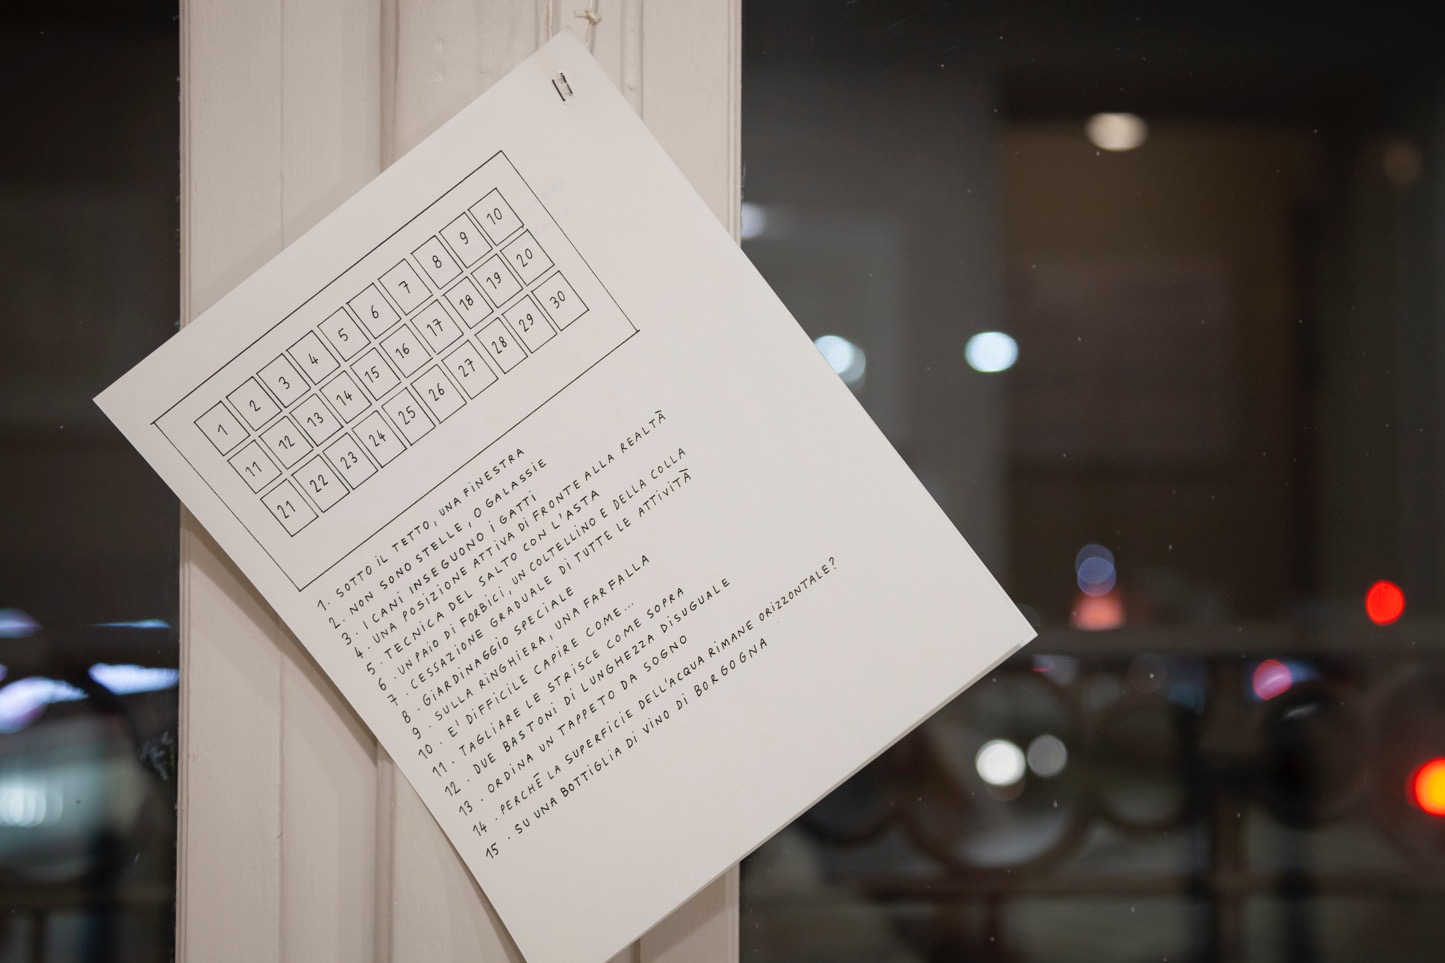 1 2 3 4 5 6 7 8 9 10
11 12 13 14 15 16 17 18 19 20
21 22 23 24 25 26 27 28 29 30
1. SOTTO IL TETTO, UNA FINESTRA
2. NON SONO STELLE, O GALASSIE
3. I CANI INSEGUONO I GATTI
4. UNA POSIZIONE ATTIVA DI FRONTE ALLA REALTÀ
5. TECNICA DEL SALTO CON L'ASTA
6. UN PAIO DI FORBICI, UN COLTELLINO E DELLA COLLA
7. CESSAZIONE GRADUALE DI TUTTE LE ATTIVITÀ
8. GIARDINAGGIO SPECIALE
9. SULLA RINGHIERA, UNA FARFALLA
10. E' DIFFICILE CAPIRE COME...
11. TAGLIARE LE STRISCE COME SOPRA
12. DUE BASTONI DI LUNGHEZZA DISUGUALE
13. ORDINA UN TAPPETO DA SOGNO
14. PERCHÉ LA SUPERFICIE DELL'ACQUA RIMANE ORIZZONTALE?
15. SU UNA BOTTIGLIA DI VINO DI BORGOGNA